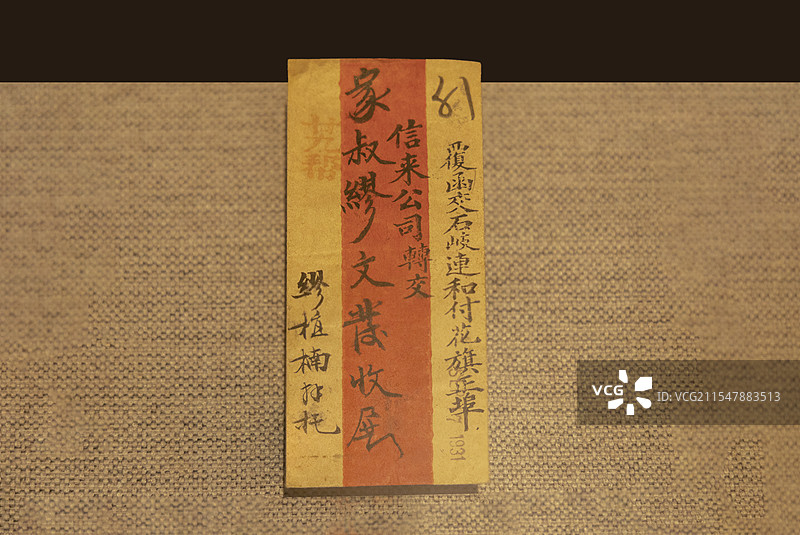 覆函交石岐連和付花旗正埠
1931
信来公司轉交
家叔繆文發收展
繆植楠付托
VCG
VCG ID:VCG211547883513